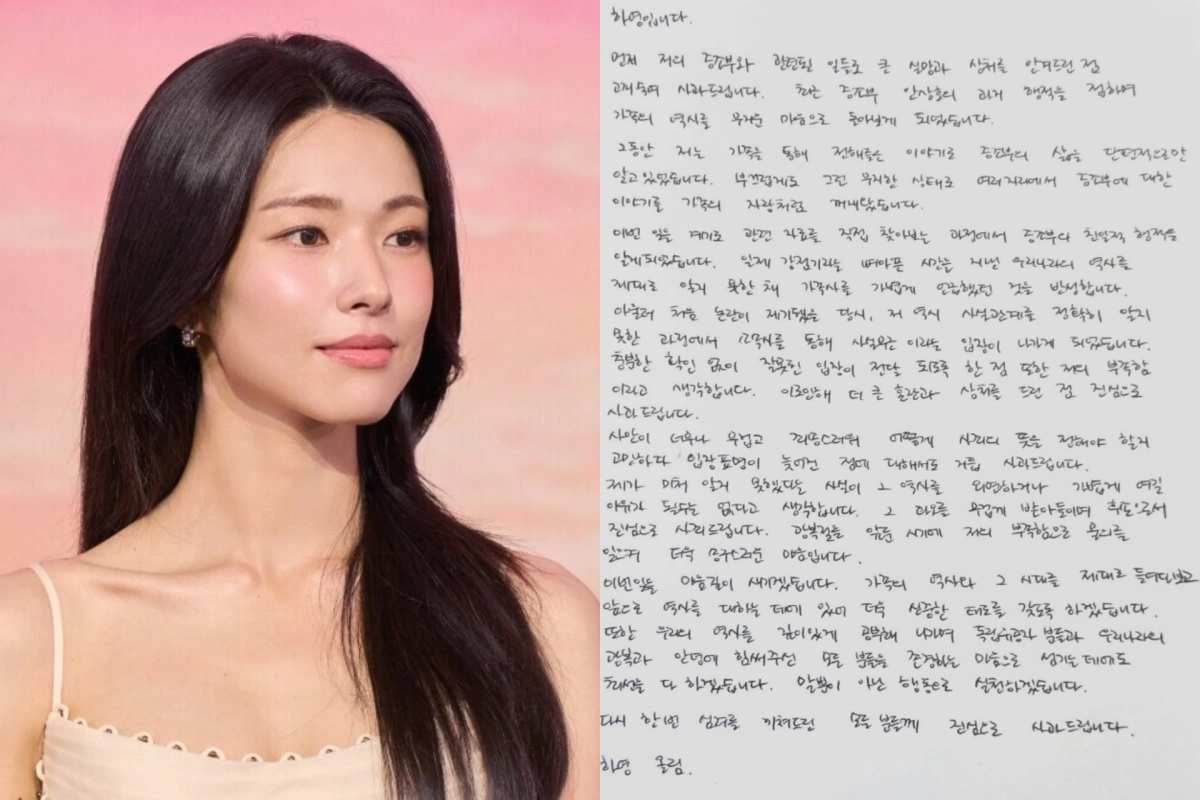 하영입니다.
먼저 저의 증조부와 관련된 일들로 큰 실망과 상처를 안겨드린 점
고개 숙여 사과드립니다. 최근 증조부 안상호의 과거 행적을 접하며
가족의 역사를 무거운 마음으로 돌아보게 되었습니다.
그동안 저는 가족을 통해 전해들은 이야기로 증조부의 삶을 단편적으로만
알고 있었습니다. 부끄럽게도 그런 무지한 상태로 여러 자리에서 증조부에 대한
이야기를 가족의 자랑처럼 꺼내왔습니다.
이번 일을 계기로 관련 자료를 직접 찾아보는 과정에서 증조부의 친일적 행적을
알게되었습니다. 일제 강점기라는 뼈아픈 시간을 지낸 우리나라의 역사를
제대로 알지 못한 채 가족사를 가볍게 언급했던 것을 반성합니다.
아울러 처음 논란이 제기됐을 당시, 저 역시 사실관계를 정확히 알지
못한 과정에서 소속사를 통해 사실무근 이라는 입장이 나가게 되었습니다.
충분한 확인 없이 잘못된 입장이 전달 되도록 한 점 또한 저의 부족함
이라고 생각합니다. 이로인해 더 큰 혼란과 상처를 드린 점 진심으로
사과드립니다.
사안이 너무나 무겁고 죄송스러워 어떻게 사죄의 뜻을 전해야 할지
고민하다 입장표명이 늦어진 점에 대해서도 거듭 사과드립니다.
제가 미처 알지 못했다는 사실이 그 역사를 외면하거나 가볍게 여길
이유가 될수는 없다고 생각합니다. 그 과오를 무겁게 받아들이며 후손으로서
진심으로 사죄드립니다. 광복절을 앞둔 시기에 저의 부족함으로 물의를
일으켜 더욱 송구스러운 마음입니다.
이번일을 마음깊이 새기겠습니다. 가족의 역사와 그 시대를 제대로 들여다보고
앞으로 역사를 대하는 데에 있어 더욱 신중한 태도를 갖도록 하겠습니다.
또한 우리의 역사를 깊이있게 공부해 나가며 독립유공자 분들과 우리나라의
광복과 안녕에 힘써주신 모든 분들을 존경하는 마음으로 섬기는데에도
최선을 다 하겠습니다. 말뿐이 아닌 행동으로 실천하겠습니다.
다시 한번 심려를 끼쳐드린 모든 분들께 진심으로 사과드립니다.
하영 올림.